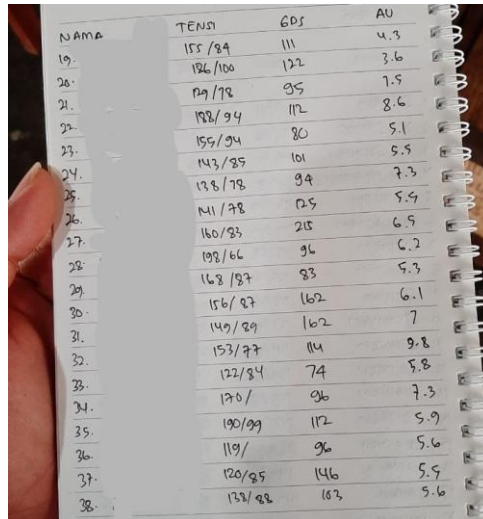 NAMA TENSI GDS AU
19. 155/84 111 4.3
20. 186/100 122 3.6
21. 129/78 95 7.5
22. 188/94 112 8.6
23. 155/94 80 5.1
24. 143/85 101 5.5
25. 138/78 94 7.3
26. 141/78 125 5.5
27. 160/83 215 6.5
28. 198/66 96 6.2
29. 168/87 83 5.3
30. 156/87 162 6.1
31. 149/89 162 7
32. 153/77 114 9.8
33. 122/84 74 5.8
34. 170/ 96 7.3
35. 190/99 112 5.9
36. 119/ 96 5.6
37. 120/85 146 5.5
38. 138/88 103 5.6